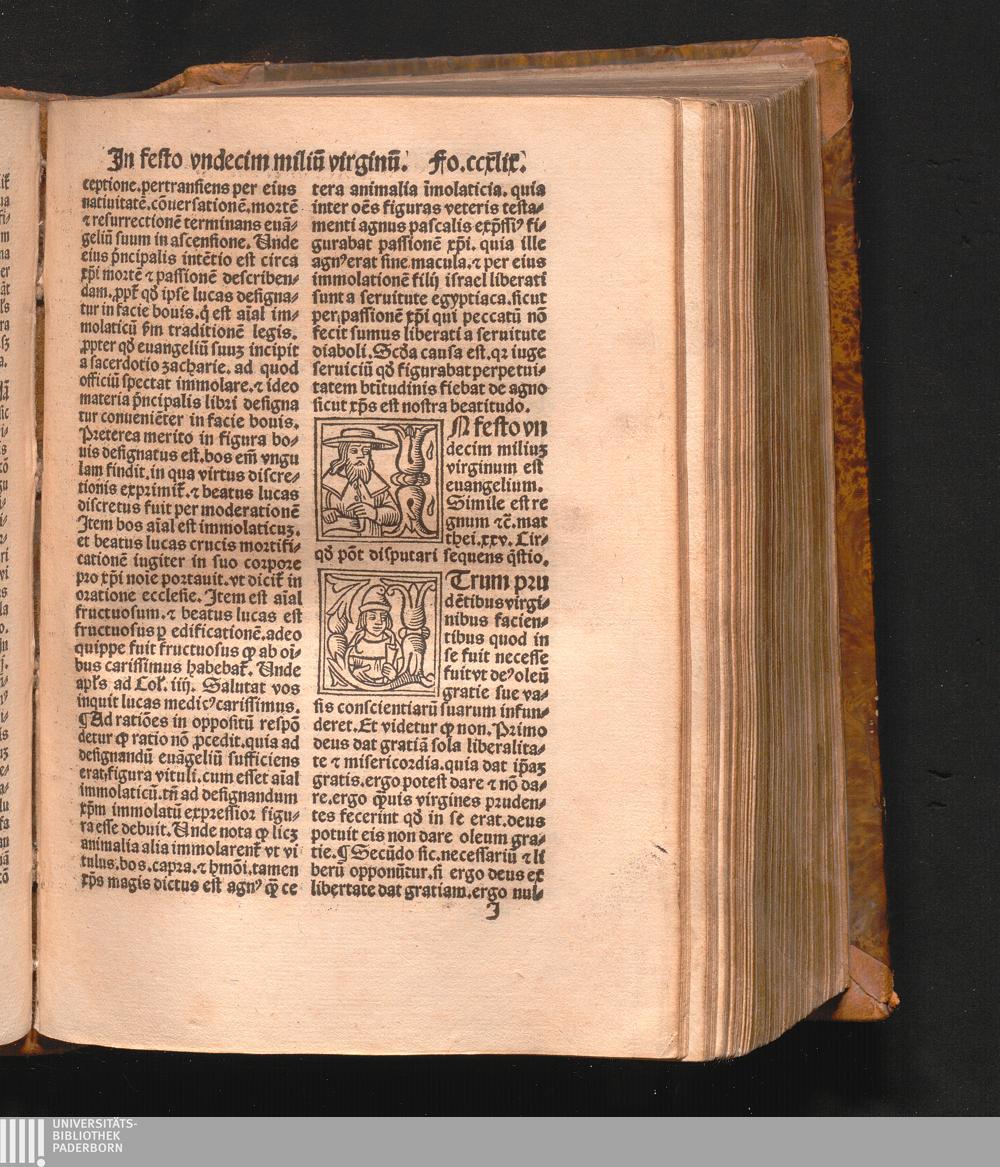 In festo vndecim miliũ virginũ. Fo.ccxlix.
ceptione.pertransiens per eius
natiuitatẽ.cõuersationẽ.mortẽ
⁊ resurrectionẽ terminans euã⸗
geliũ suum in ascensione. Unde
eius p̃ncipalis intẽtio est circa
xp̃i mortẽ ⁊ passionẽ describen⸗
dam.ꝓpt̃ qḋ ipse lucas designa⸗
tur in facie bouis.q̃ est aĩal im⸗
molaticũ ẜm traditionẽ legis.
ꝓpter qḋ euangeliũ suuꝫ incipit
a sacerdotio zacharie. ad quod
officiũ spectat immolare.⁊ ideo
materia p̃ncipalis libri designa
tur conueniẽter in facie bouis.
Preterea merito in figura bo⸗
uis designatus est.bos em̃ vngu
lam findit.in qua virtus discre⸗
tionis exprimit̃.⁊ beatus lucas
discretus fuit per moderationẽ
Item bos aĩal est immolaticuꝫ.
et beatus lucas crucis mortifi⸗
cationẽ iugiter in suo corpore
pro xp̃i noĩe portauit.vt dicit̃ in
oratione ecclesie. Item est aĩal
fructuosum.⁊ beatus lucas est
fructuosus ꝑ edificationẽ.adeo
quippe fuit fructuosus ꝙ ab oĩ⸗
bus carissimus habebat̃. Unde
apl̃s ad Col̃. iiij. Salutat vos
inquit lucas medicꝰ carissimus.
¶Ad ratiões in oppositũ respõ
detur ꝙ ratio nõ ꝓcedit.quia ad
designandũ euãgeliũ sufficiens
erat figura vituli.cum esset aĩal
immolaticũ.tñ ad designandum
xp̃m immolatũ expressior figu⸗
ra esse debuit. Unde nota ꝙ licꝫ
animalia alia immolarent̃ vt vi
tulus.bos.capra.⁊ hmõi.tamen
xp̃s magis dictus est agnꝰ ꝙ̃ ce
tera animalia ĩmolaticia. quia
inter oẽs figuras veteris testa⸗
menti agnus pascalis exp̃ssiꝰ fi⸗
gurabat passionẽ xp̃i. quia ille
agnꝰ erat sine macula.⁊ per eius
immolationẽ filij israel liberati
sunt a seruitute egyptiaca.sicut
per passionẽ xp̃i qui peccatũ nõ
fecit sumus liberati a seruitute
diaboli. Scḋa causa est.qꝛ iuge
seruiciũ qḋ figurabat perpetui⸗
tatem btĩtudinis fiebat de agno
sicut xp̃s est nostra beatitudo.
IN festo vn
decim miliuꝫ
virginum est
euangelium.
Simile est re
gnum ⁊c̃. mat
thei.xxv. Cir⸗
qḋ põt disputari sequens q̃stio.
UTrum pru
dẽtibus virgi⸗
nibus facien⸗
tibus quod in
se fuit necesse
fuit vt deꝰ oleũ
gratie sue va⸗
sis conscientiarũ suarum infun⸗
deret. Et videtur ꝙ non. Primo
deus dat gratiã sola liberalita⸗
te ⁊ misericordia.quia dat ip̃aꝫ
gratis.ergo potest dare ⁊ nõ da⸗
re.ergo ꝙ̃uis virgines pruden⸗
tes fecerint qḋ in se erat.deus
potuit eis non dare oleum gra⸗
tie.¶Secũdo sic.necessariũ ⁊ li
berũ opponũtur.si ergo deus ex
libertate dat gratiam.ergo nul⸗
I
UNIVERSITÄTS-
BIBLIOTHEK
PADERBORN